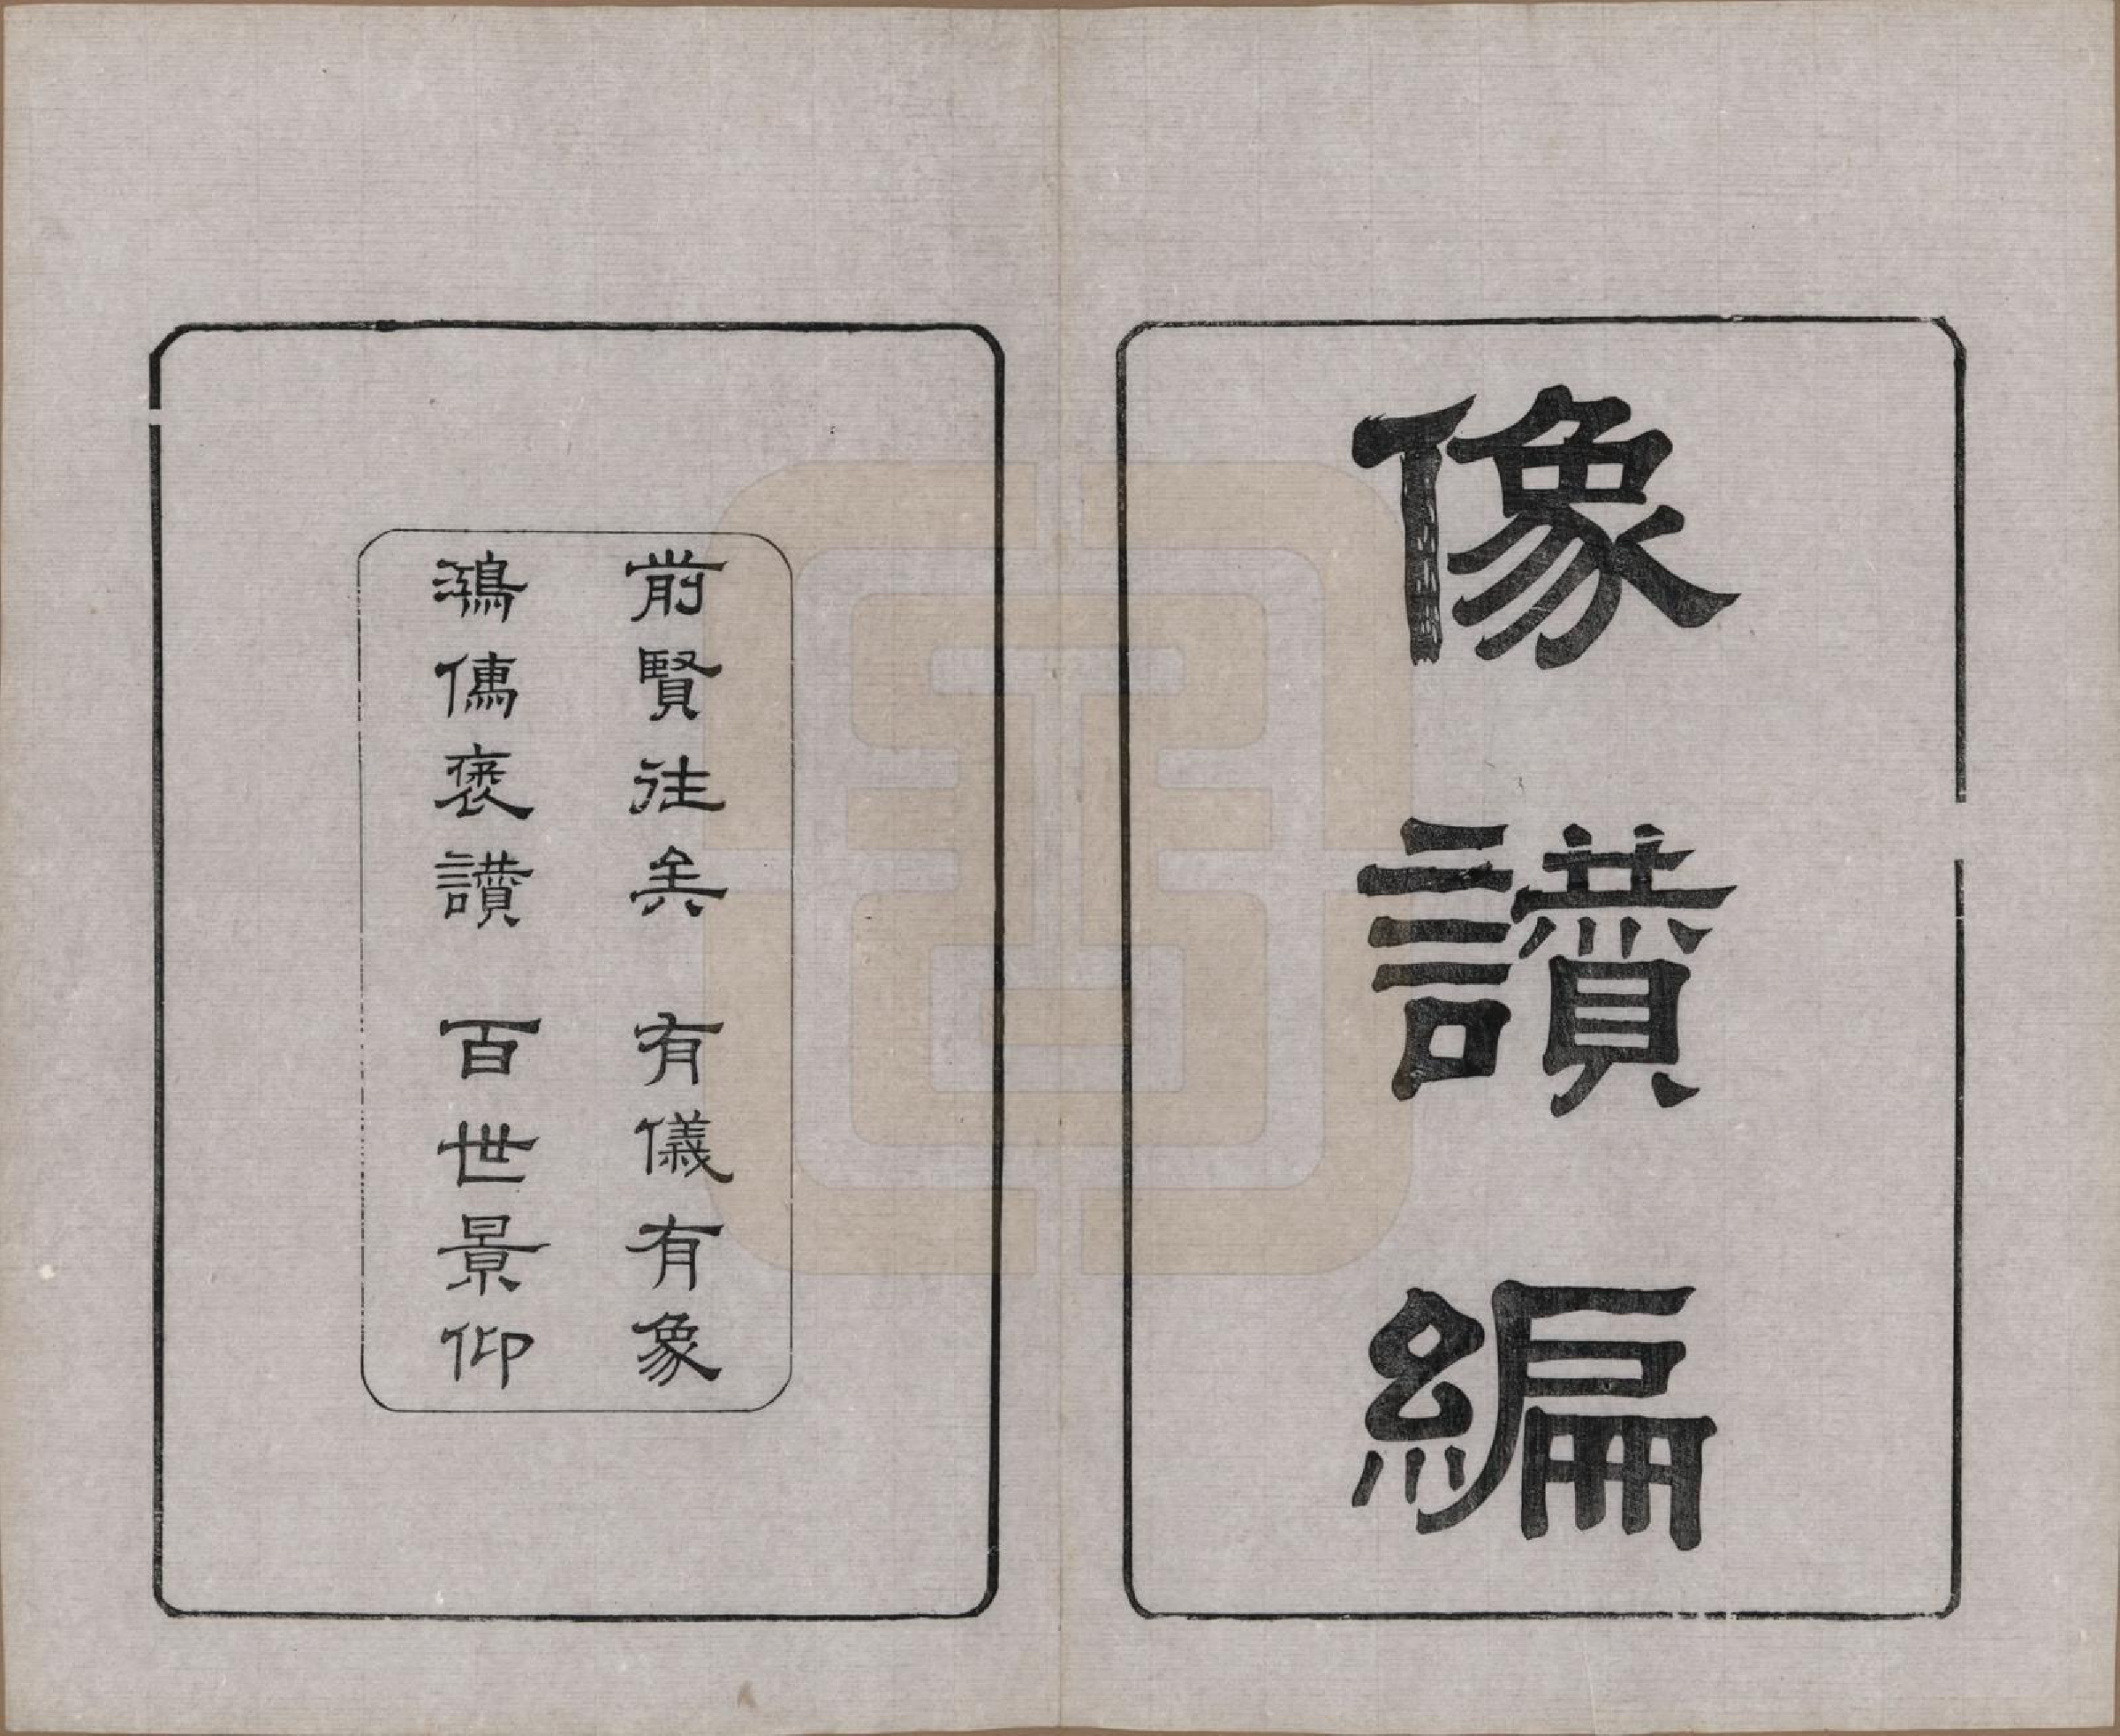 像讚編
前賢往矣 有儀有象
鴻儁褒讚 百世景仰